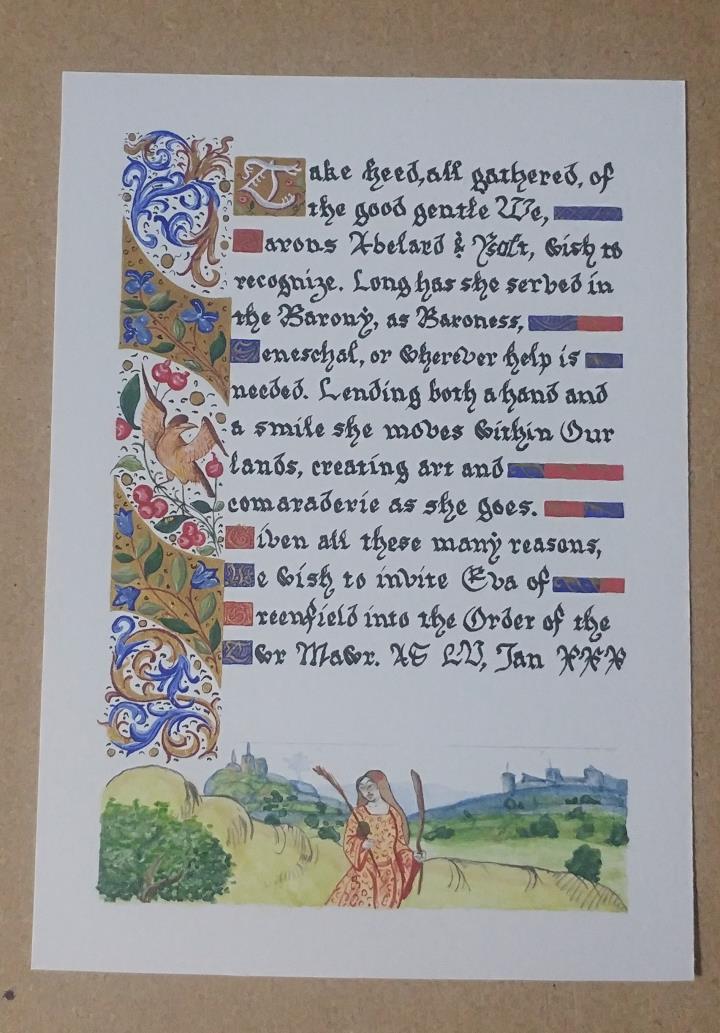 Take heed, all gathered, of
the good gentle We,
Barons Abelard & Ysolt, wish to
recognize. Long has she served in
the Barony, as Baroness,
Seneschal, or wherever help is
needed. Lending both a hand and
a smile she moves within Our
lands, creating art and
comaraderie as she goes.
Given all these many reasons,
We wish to invite Eva of
Greenfield into the Order of the
Twr Mawr. AS LV, Jan XXX